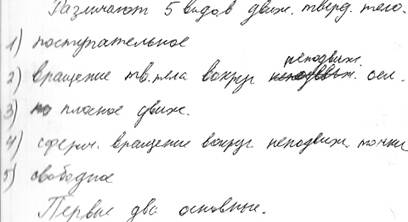 Различают 5 видов движ. тверд. тела.
1) поступательное
2) вращение тв. тела вокруг неподвиж. оси.
3) плоское движ.
4) сферич. вращение вокруг неподвиж точки
5) свободное
Первые два основные.